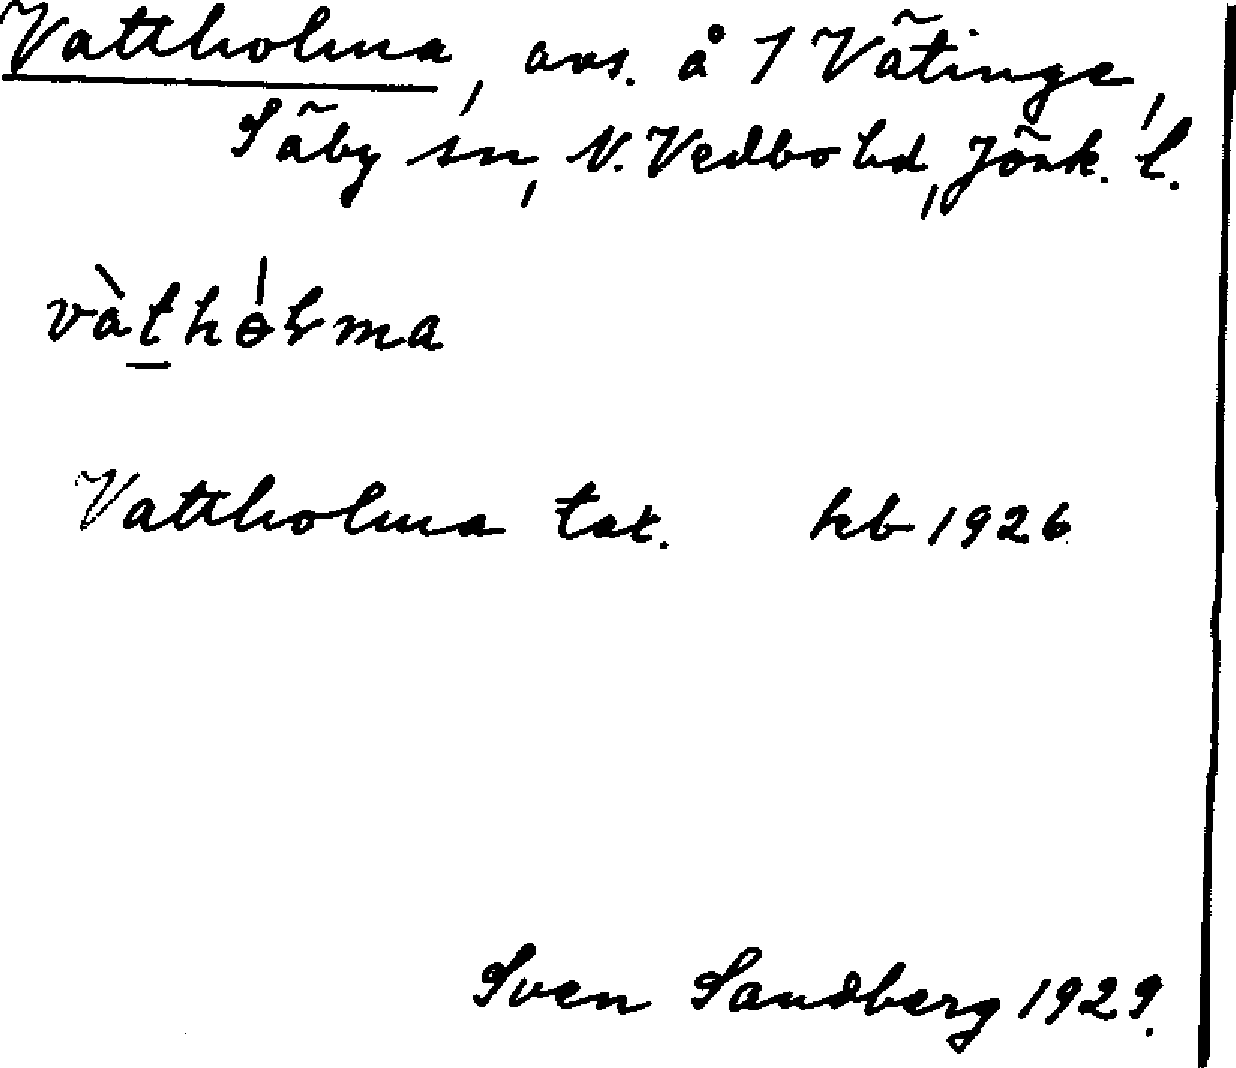 Vattholma, avs. å 1 Vätinge,
Säby sn, N. Vedbo hd, Jönk. l.
vàthɵ́lma
Vattholma tax. kb 1926
Sven Sandberg 1929.